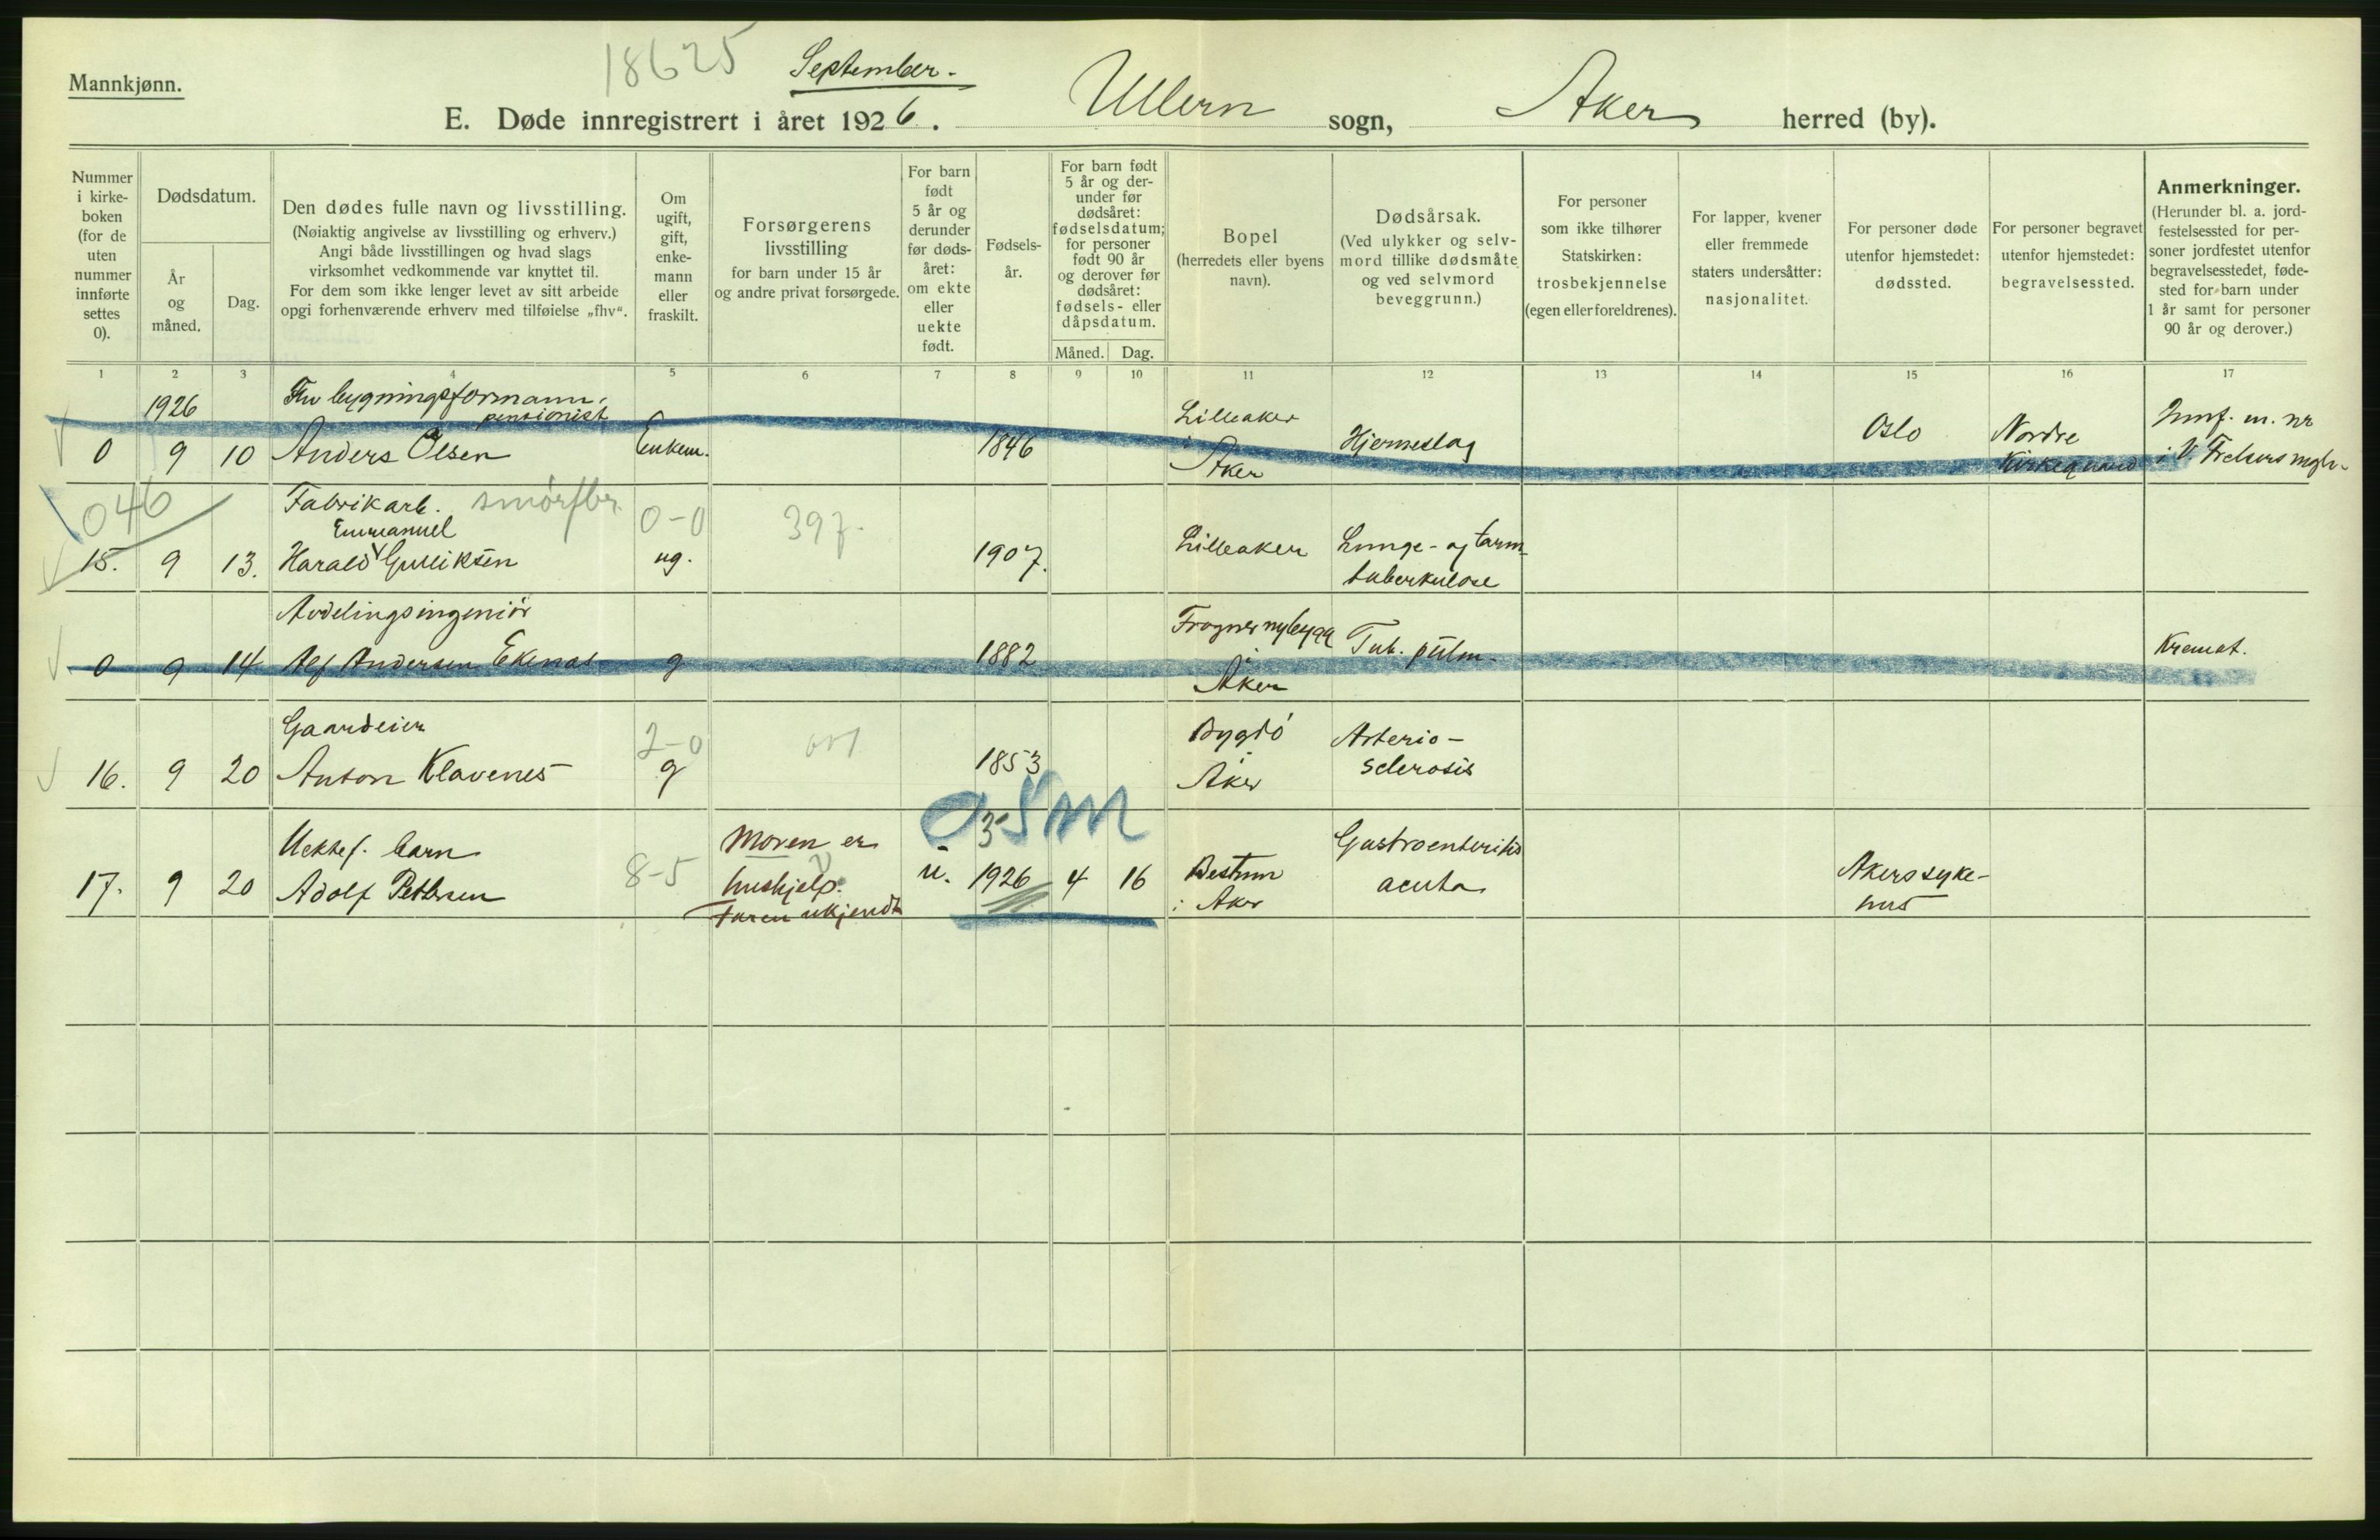 Mannkjønn.
18625
September.
E. Døde innregistrert i året 1926. Ullern sogn, Aker herred (by).
Nummer i kirke-boken (for de uten nummer innførte settes 0).
Dødsdatum.
År og måned.
Dag.
Den dødes fulle navn og livsstilling.
(Nøiaktig angivelse av livsstilling og erhverv.)
Angi både livsstillingen og hvad slags
virksomhet vedkommende var knyttet til.
For dem som ikke lenger levet av sitt arbeide
opgi forhenværende erhverv med tilføielse „fhv“.
Om ugift, gift, enke-mann eller fraskilt.
Forsørgerens livsstilling
for barn under 15 år
og andre privat forsørgede.
For barn født 5 år og derunder før døds-året: om ekte eller uekte født.
Fødsels-år.
For barn født 5 år og der-under før dødsåret: fødselsdatum; for personer født 90 år og derover før dødsåret: fødsels- eller dåpsdatum.
Måned. Dag.
Bopel
(herredets eller byens navn).
Dødsårsak.
(Ved ulykker og selv-mord tillike dødsmåte og ved selvmord beveggrunn.)
For personer som ikke tilhører Statskirken: trosbekjennelse (egen eller foreldrenes).
For lapper, kvener eller fremmede staters undersåtter: nasjonalitet.
For personer døde utenfor hjemstedet: dødssted.
For personer begravet utenfor hjemstedet: begravelsessted.
Anmerkninger.
(Herunder bl. a. jord-festelsessted for per-soner jordfestet utenfor begravelsesstedet, føde-sted for barn under 1 år samt for personer 90 år og derover.)
1 2 3 4 5 6 7 8 9 10 11 12 13 14 15 16 17
1926 Fhv bygningsformann,
pensionist
0 9 10 Anders Olsen Enkem. 1846 Lilleaker i Aker Hjerneslag Oslo Nordre Kirkegaard
046 Fabrikarb. smørfbr. 0-0 397.
Emmanuel
15. 9 13. Harald Gulliksen ug. 1907. Lilleaker Lunge- og tarm-
tuberkulose
Avdelingsingeniør
0 9 14 Alf Andersen Ekenas g 1882 Frogner nybygg i Aker Tub. pulm. Kremat.
Gaardeier 2-0
16. 9 20 Anton Klavenes g 1853 Bygdö i Aker Arterio-
sclerosis
Uektef. barn
17. 9 20 Adolf Pettersen 8-5 Moren er
hushjelp.
Faren ukjendt u. 1926 4 16 Bestum
i Aker Gastroenteritis
acuta Akers syke-
hus